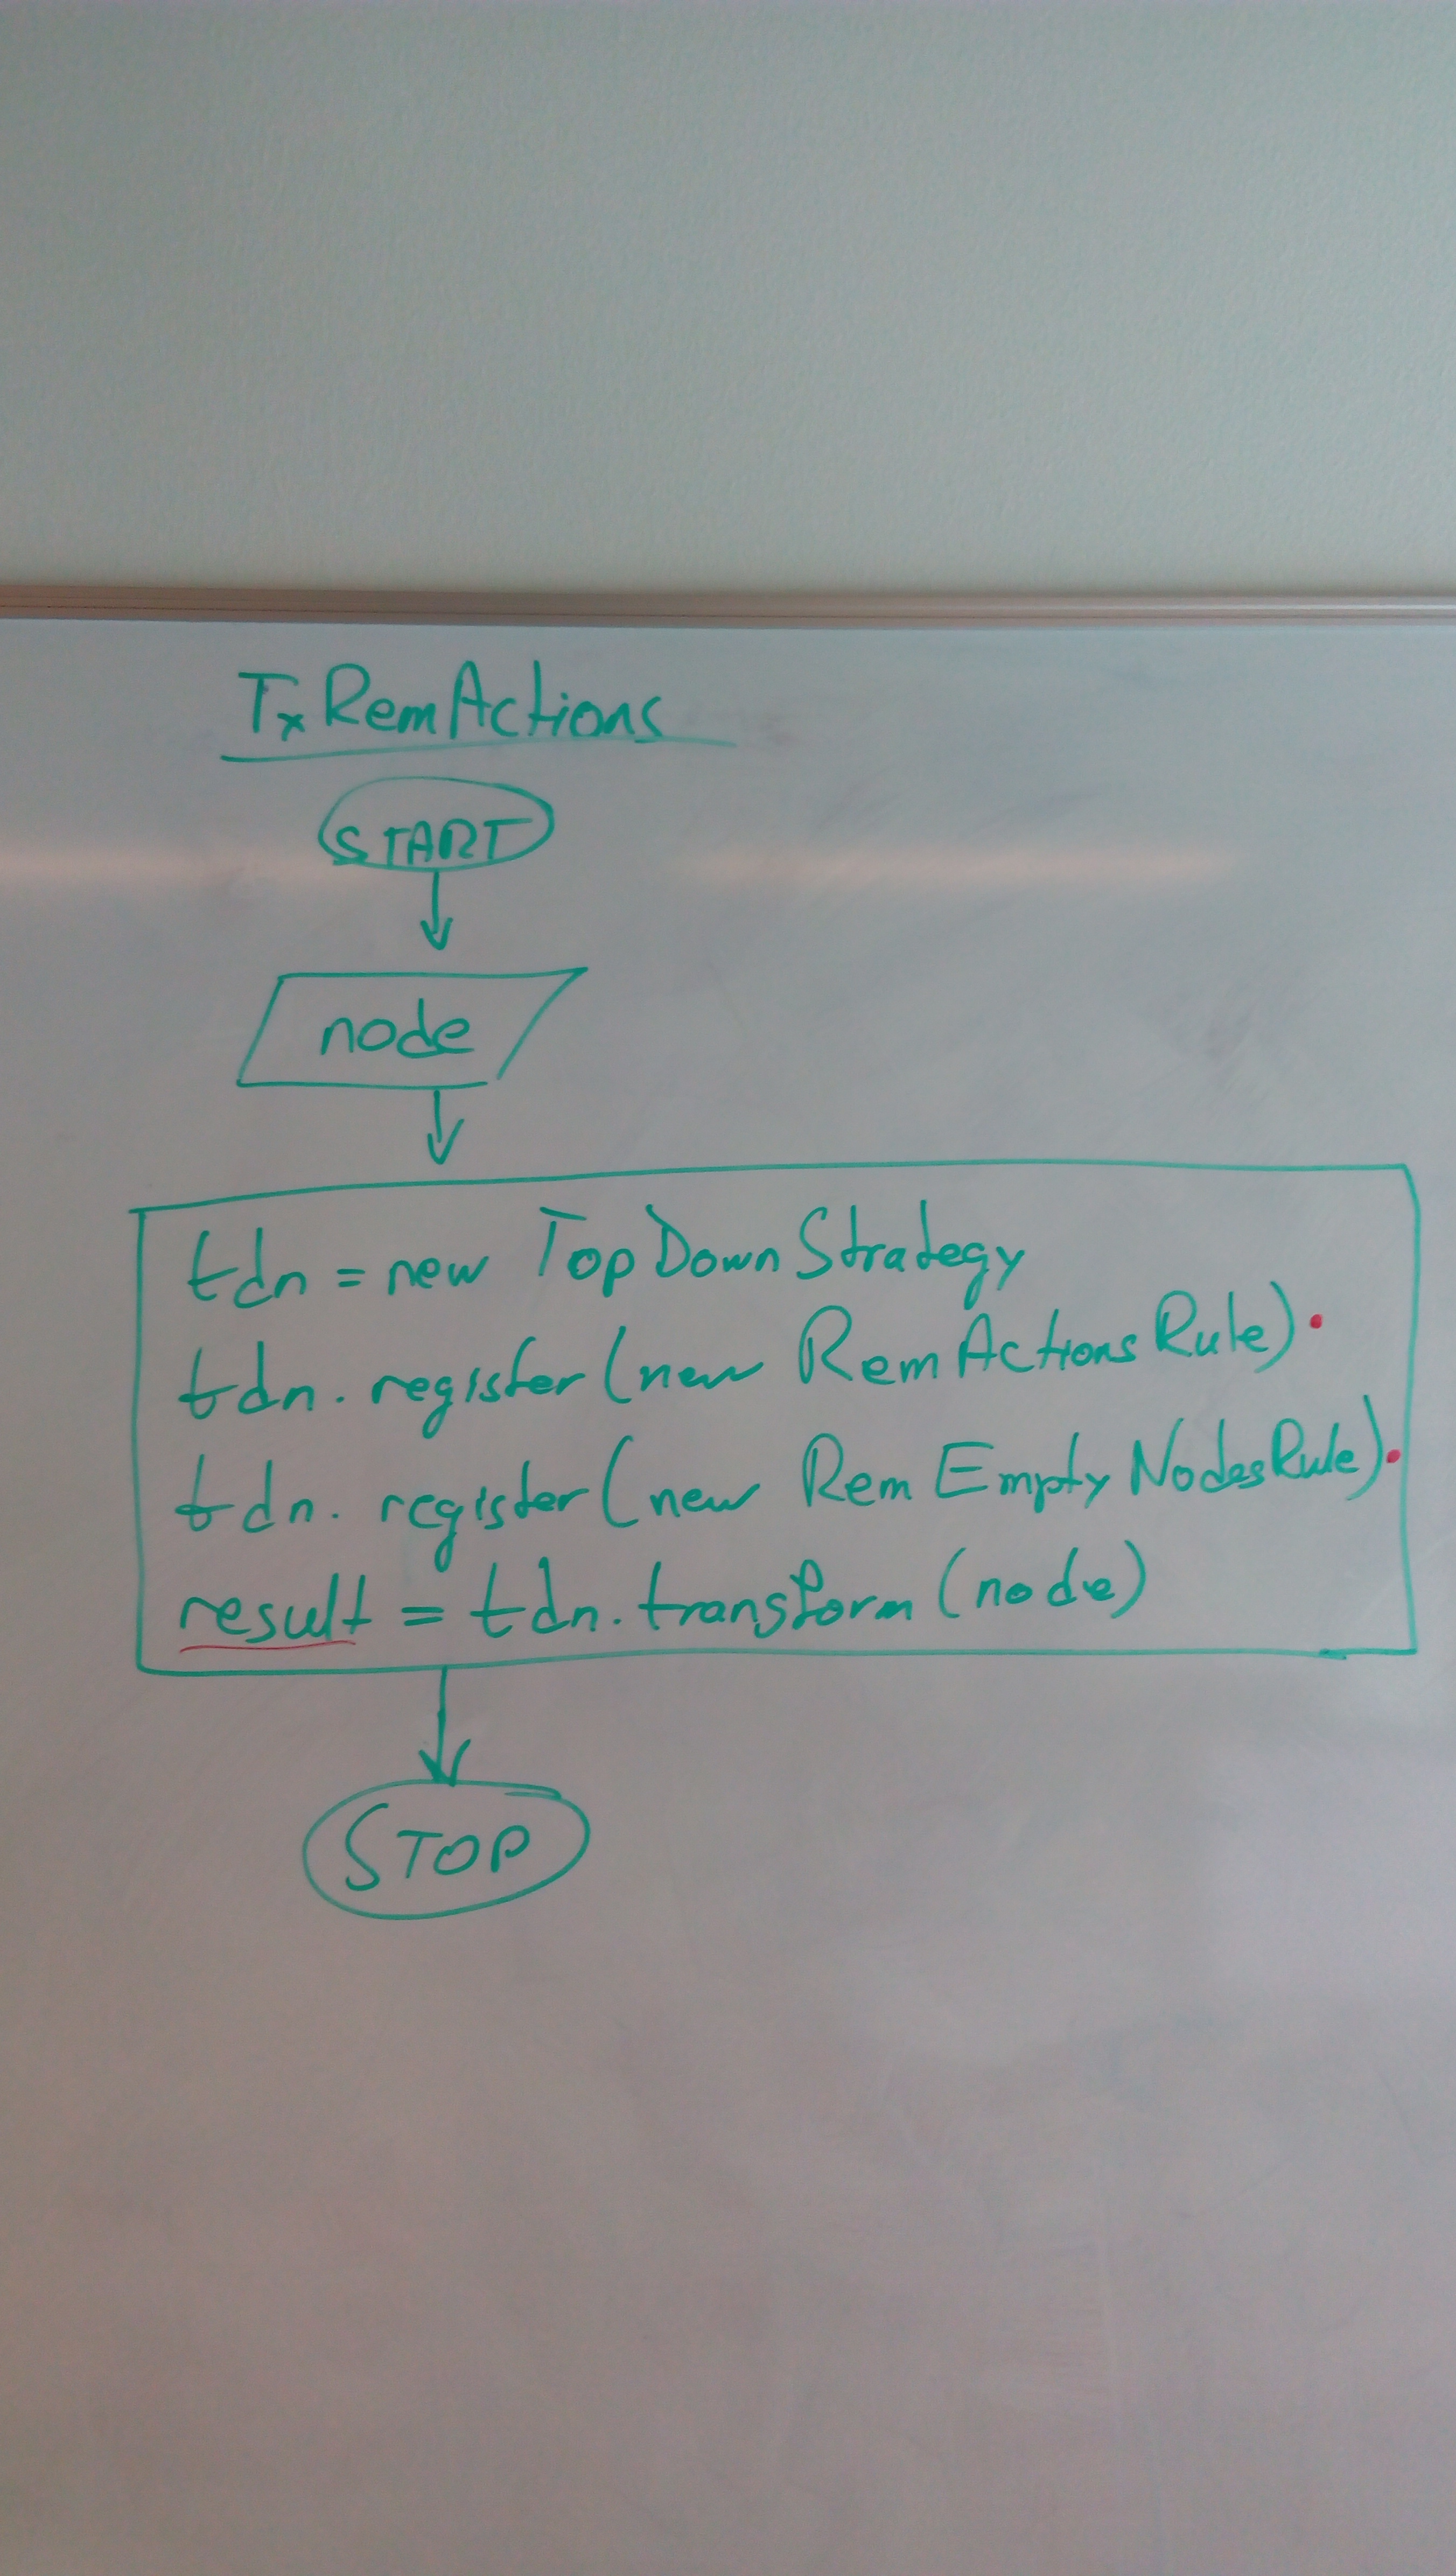 TxRemActions
START
node
tdn = new TopDownStrategy
tdn.register(new RemActionsRule)
tdn.register(new RemEmptyNodesRule)
result = tdn.transform(node)
STOP